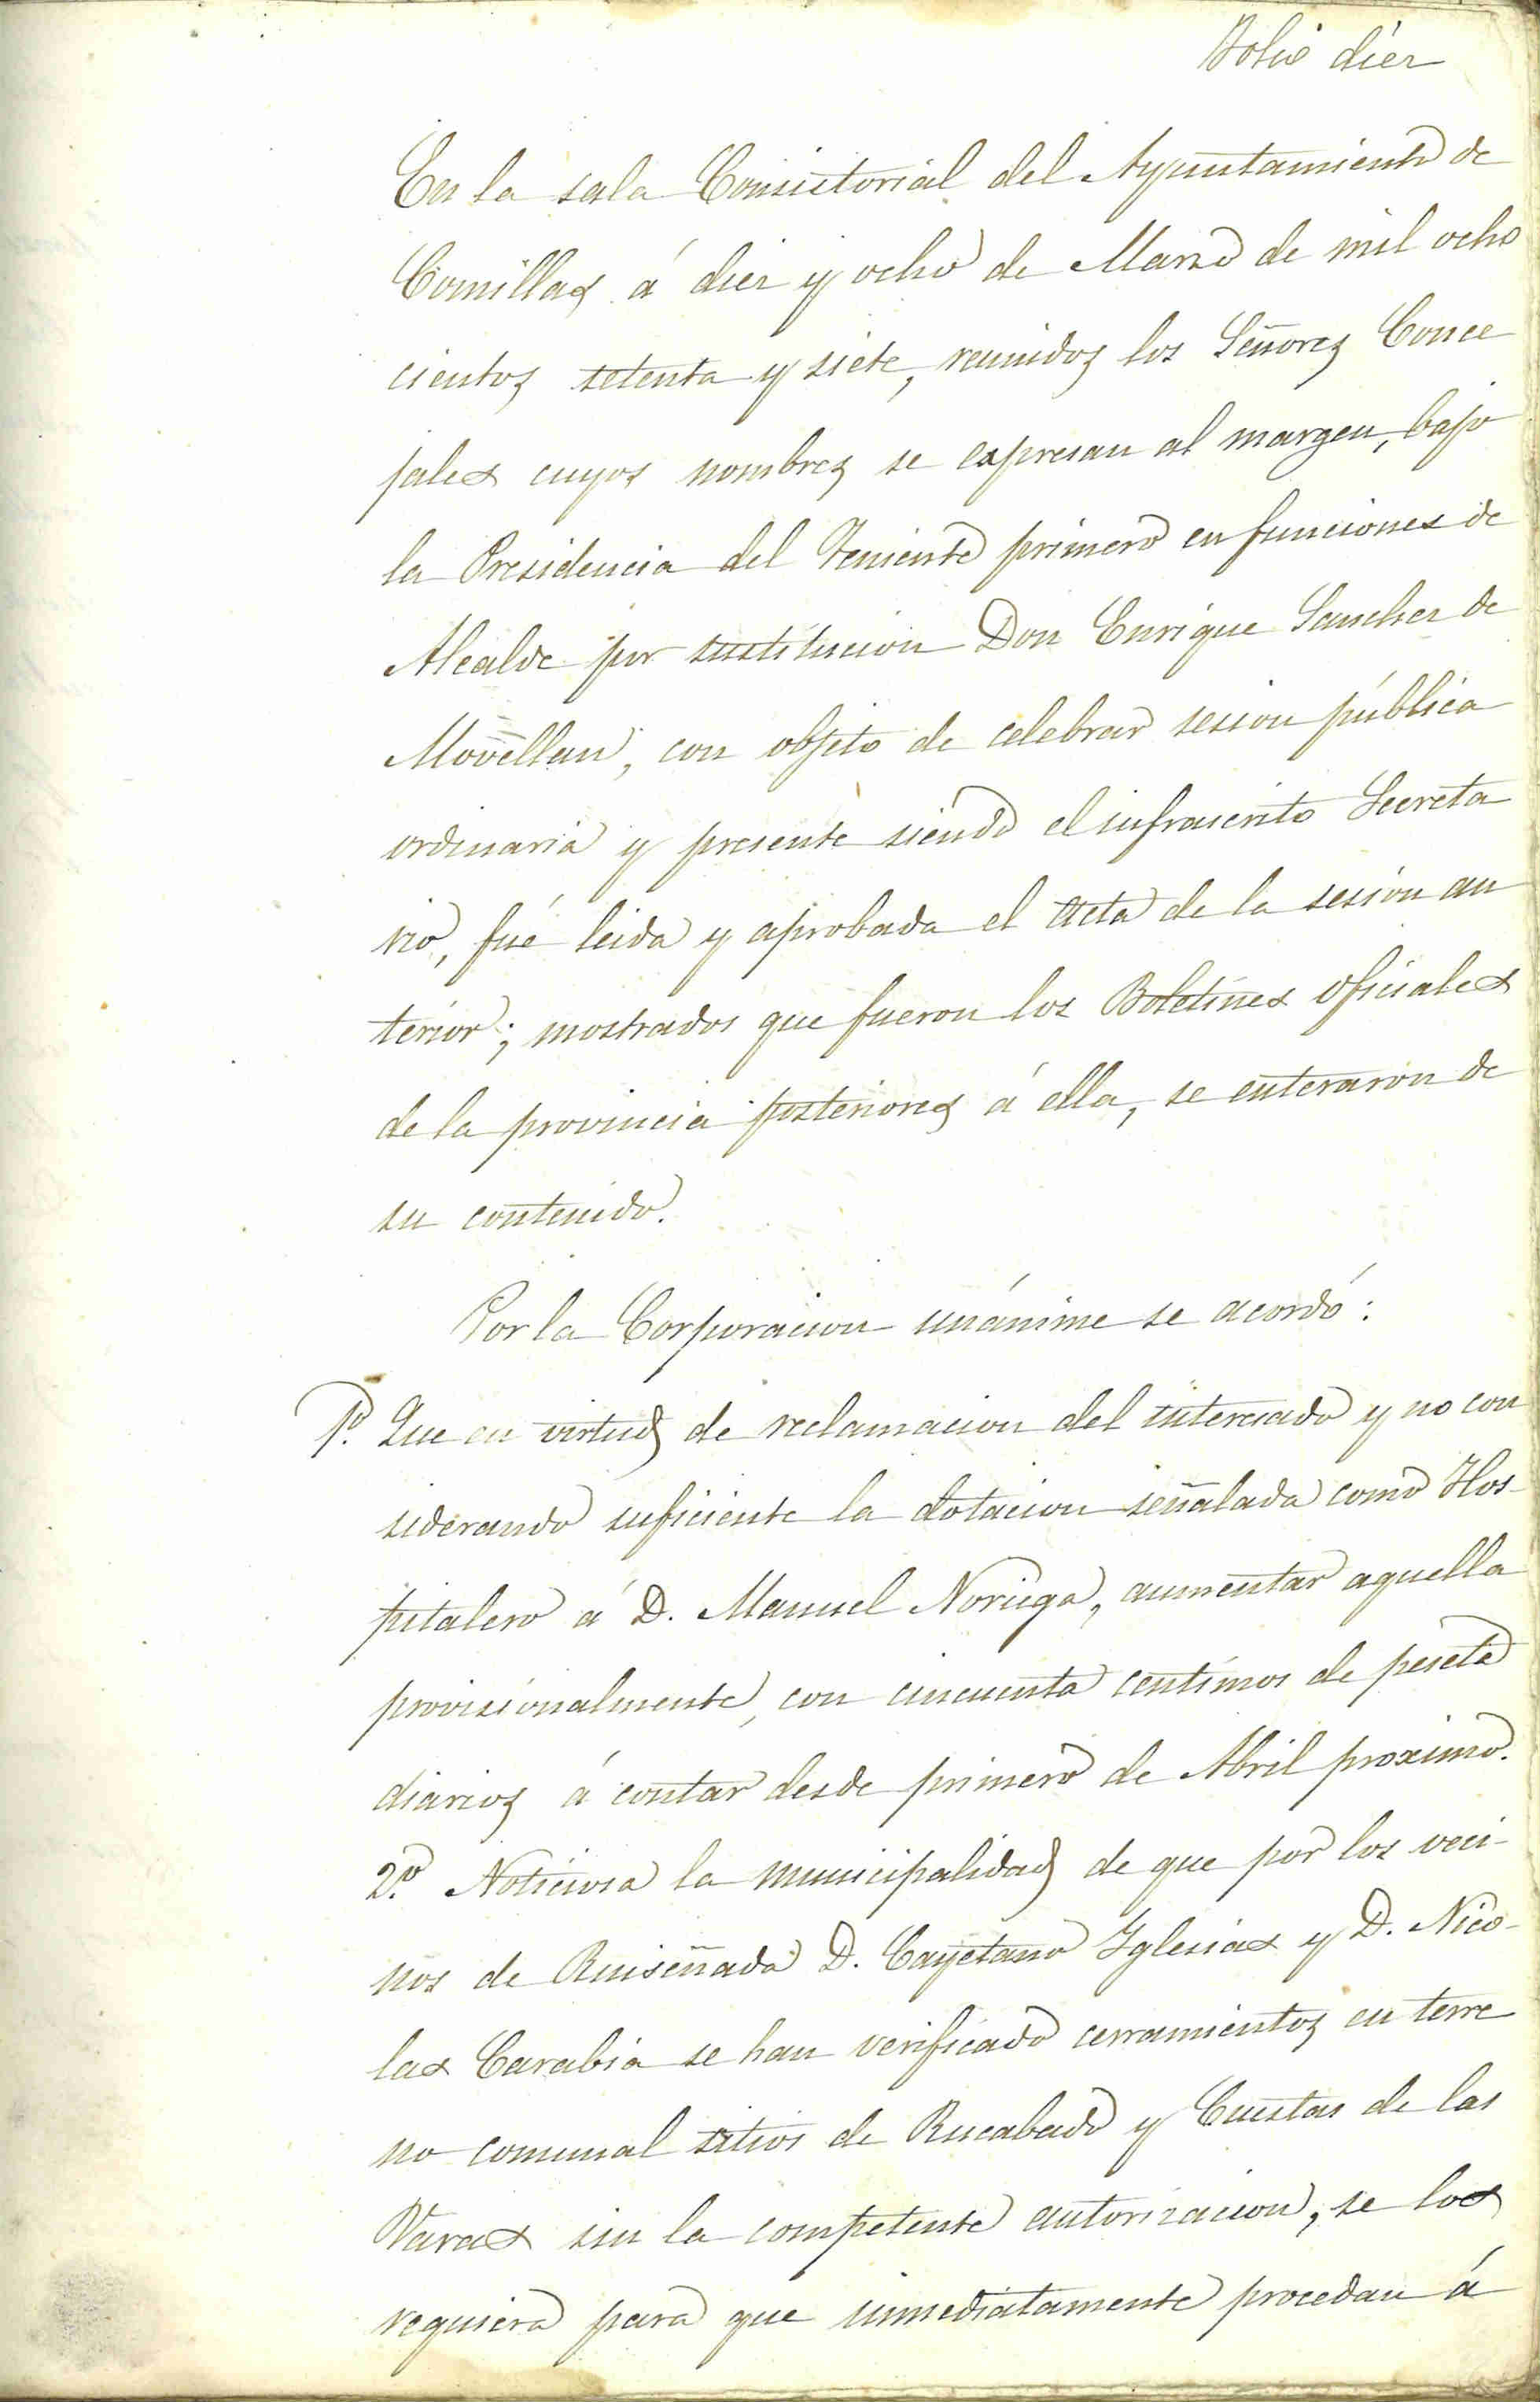 Folio diez
En la sala Consistorial del Ayuntamiento de
Comillas á diez y ocho de Marzo de mil ocho
cientos setenta y siete, reunidos los Señores Conce
jales cuyos nombres se expresan al margen, bajo
la Presidencia del Teniente primero en funciones de
Alcalde por sustitucion Don Enrique Sanchez de
Movellan, con objeto de celebrar sesion pública
ordinaria y presente siendo el infrascrito Secreta
rio, fué leida y aprobada el acta de la sesion an
terior; mostrados que fueron los Boletines oficiales
de la provincia posteriores á ella, se enteraron de
su contenido.
Por la Corporacion unánime se acordó:
1º. Que en virtud de reclamacion del interesado y no con
siderando suficiente la dotacion señalada como Hos-
pitalero á D. Manuel Noriega, aumentar aquella
provisionalmente, con cincuenta centimos de peseta
diarios á contar desde primero de Abril proximo.
2º. Noticiosa la municipalidad de que por los veci-
nos de Ruiseñada D. Cayetano Iglesias y D. Nico-
las Carabia se han verificado cerramientos en terre
no comunal sitios de Rucabado y Cuestas de las
Varas sin la competente autorizacion, se los
requiera para que inmediatamente procedan á